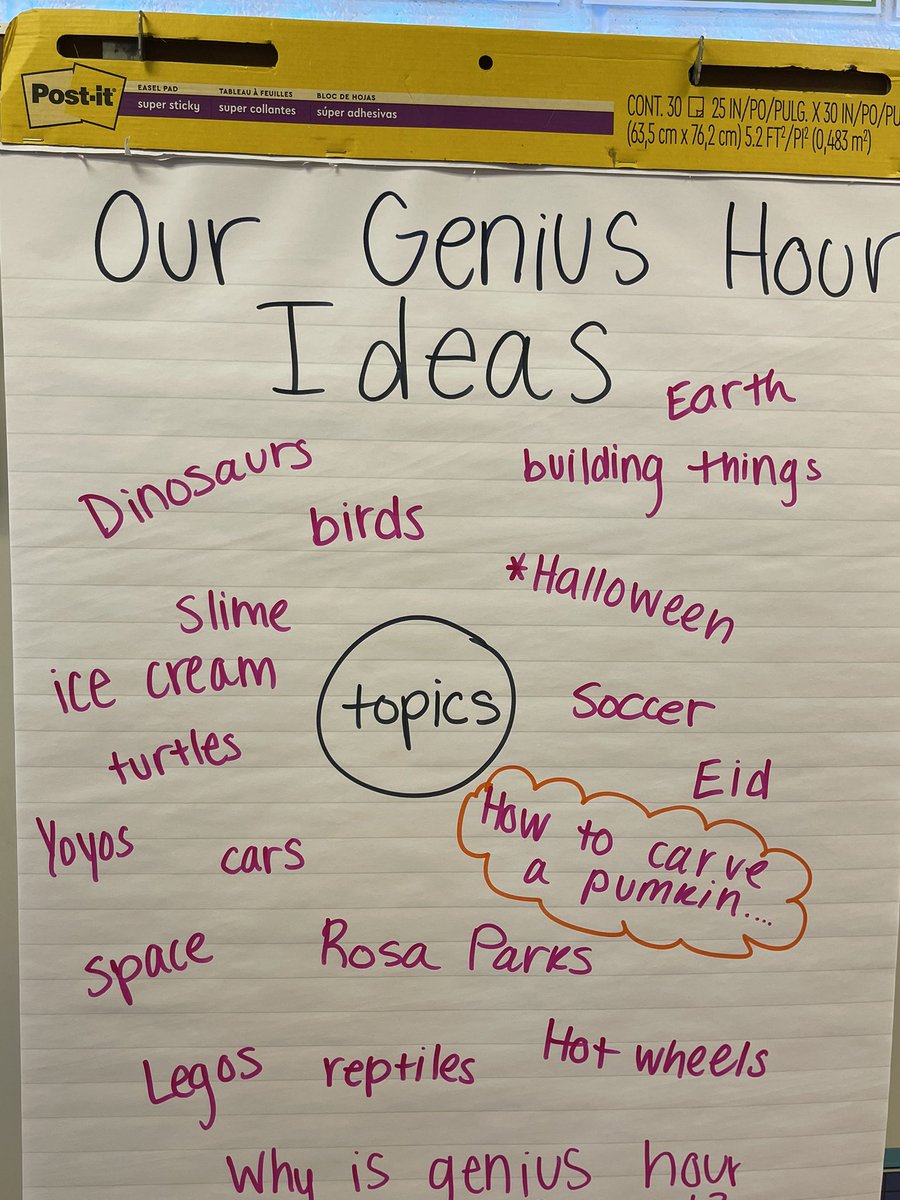 Post-it
EASEL PAD
super sticky
TABLEAU À FEUILLES
super collantes
BLOC DE HOJAS
súper adhesivas
CONT. 30 25 IN/PO/PULG. X 30 IN/PO/PU
(63,5 cm x 76,2 cm) 5.2 FT²/PI² (0,483 m²)
Our Genius Hour
Ideas
Earth
Dinosaurs
building things
birds
*Halloween
Slime
ice cream
topics
Soccer
turtles
Eid
Yoyos
cars
How to carve
a pumkin....
Space
Rosa Parks
Legos
reptiles
Hot wheels
Why is genius hour